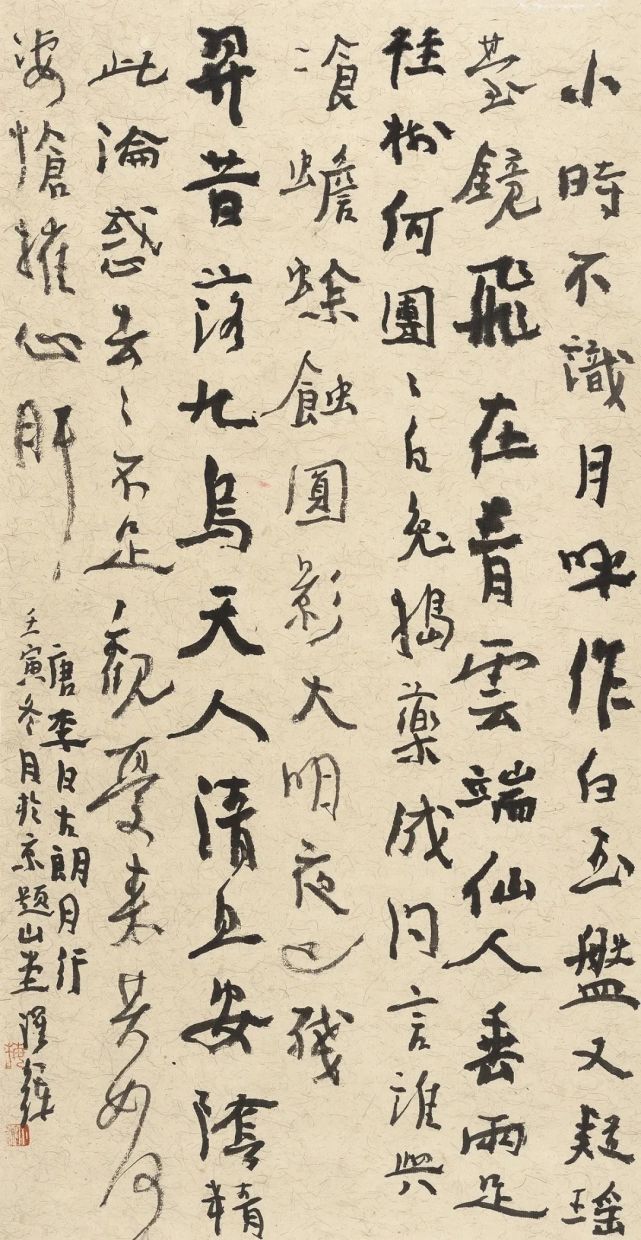 小時不識月呼作白玉盤又疑瑤
臺鏡飛在青雲端仙人垂兩足
桂樹何團々白兔搗藥成问言誰與
飡蟾蜍蝕圓影大明夜已殘
羿昔落九烏天人清且安陰精
此淪惑去々不足觀憂來其如何
凄愴摧心肝
唐李白古朗月行
壬寅冬月於京題山堂